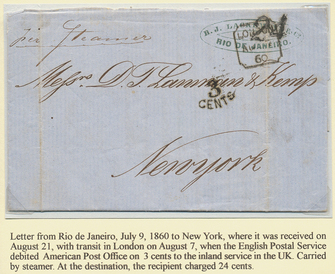 per Steamer
RIO DE JANEIRO.
LONDON
60
Messrs. D. T. Lanman & Kemp
3
CENTS
New york
Letter from Rio de Janeiro, July 9, 1860 to New York, where it was received on
August 21, with transit in London on August 7, when the English Postal Service
debited American Post Office on 3 cents to the inland service in the UK. Carried
by steamer. At the destination, the recipient charged 24 cents.